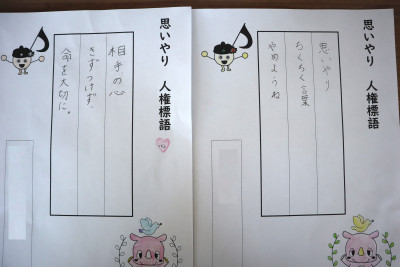 思いやり　人権標語
思いやり
ちくちく言葉
やめようね
思いやり　人権標語
相手の心
きずつけず、
命を大切に。